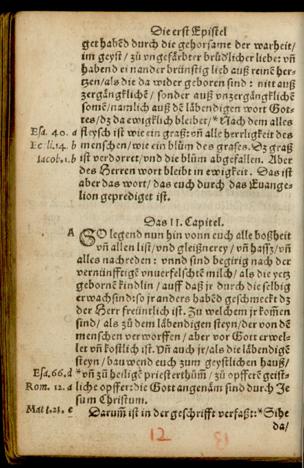 Die erst Epistel
get habẽd durch die gehorsame der warheit/
im geyst/ zů vngefärbter brüdlicher liebe: vñ
habend einander brünstig lieb auß reinẽ her-
tzen/ als die da wider geboren sind: nitt auß
zergãgklichẽ/ sonder auß vnzergãgklichẽ
somẽ/ namlich auß dẽ läbendigen wort Got-
tes/ dz da ewigklich bleibet/ *Nach dem alles
Esa. 40. a fleysch ist wie ein graß: vñ alle herrligkeit des
Eccli. 14. b menschen/ wie ein blům des grases. Dz graß
Iacob. 1. b ist verdorret/ vnd die blům abgefallen. Aber
des Herren wort bleibt in ewigkeit. Das ist
aber das wort/ das euch durch das Euange-
lion geprediget ist.
Das II. Capitel.
A SO legend nun hin vonn euch alle boßheit
vñ allen list/ vnd gleißnerey/ vñ haß/ vñ
alles nachreden: vnnd sind begirig nach der
vernünfftigẽ vnuerfelschtẽ milch/ als die yetz
gebornẽ kindlin/ auff daß jr durch die selbig
erwachsind: so jr anders habẽd geschmeckt dz
der Herr freüntlich ist. Zů welchem jr kom̃en
sind/ als zů dem läbendigen steyn/ der von dẽ
menschen verworffen/ aber vor Gott erwel-
ler vñ kostlich ist. Vñ auch jr/ als die läbendigẽ
steyn/ bauwend euch zum geystlichen hauß/
Esa. 66. d *vñ zů heiligẽ priesterthům̃/ zů opfferẽ geist-
Rom. 12. a liche opffer: die Gott angenäm sind durch Je
sum Christum.
Mat. 21. e Darum̃ ist in der geschrifft verfaßt: *Sihe
da/
12